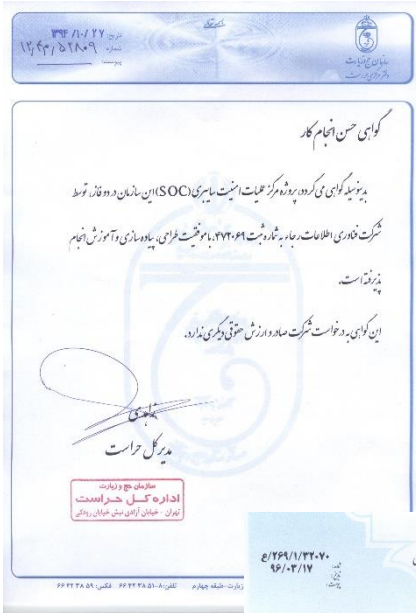 سازمان حج و زیارت
تاریخ: ۱۳۹۴/۱۰/۲۷
شماره: ۱۲٫۴۳٫۵۲۸۰۹
پیوست:
گواهی حسن انجام کار
بدینوسیله گواهی می گردد، پروژه مرکز عملیات امنیت سایبری (SOC) این سازمان در دو فاز، توسط
شرکت فناوری اطلاعات رجاء به شماره ثبت ۴۷۲۰۶۹، با موفقیت طراحی، پیاده سازی و آموزش انجام
پذیرفته است.
این گواهی به درخواست شرکت صادر و ارزش حقوقی دیگری ندارد.
مدیر کل حراست
سازمان حج و زیارت
اداره کل حراست
تهران - خیابان آزادی نبش خیابان رودکی
۲۶۹/۱/۳۲۰۷۰/ع
۹۶/۰۳/۱۷
زیارت-طبقه چهارم تلفن: ۸-۵۱ ۳۸ ۴۲ ۶۶ فکس: ۵۹ ۳۸ ۴۲ ۶۶